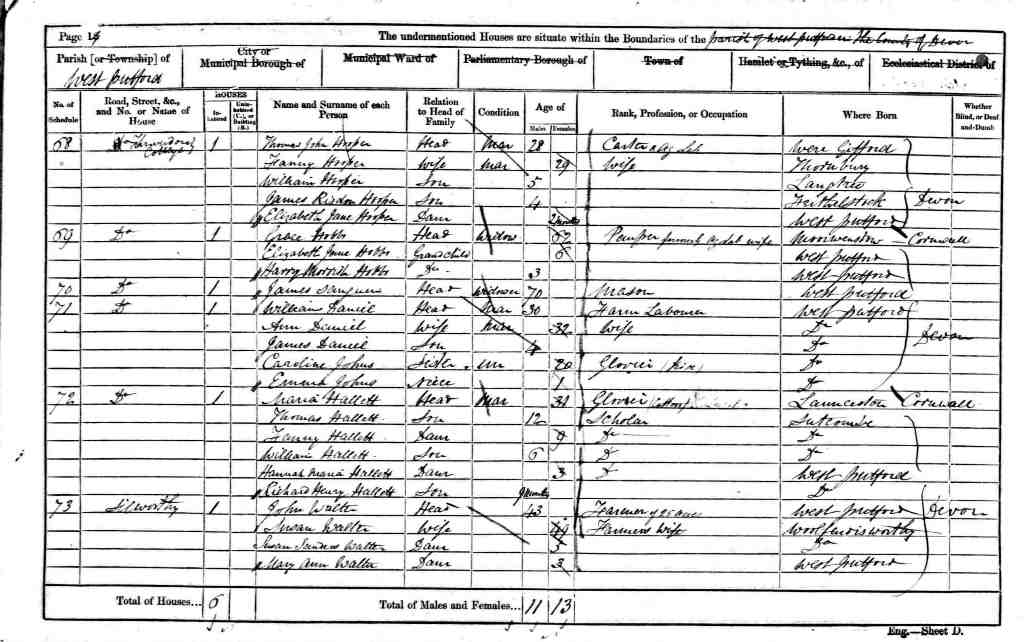 Page 14 The undermentioned Houses are situate within the Boundaries of the parish of West Putford in the County of Devon
Parish [or Township] of City or Municipal Borough of Municipal Ward of Parliamentary Borough of Town of Hamlet or Tything, &c., of Ecclesiastical District of
West Putford
No. of Schedule Road, Street, &c., and No. or Name of House HOUSES In-habited Unin-habited (U.), or Building (B.) Name and Surname of each Person Relation to Head of Family Condition Age of Males Females Rank, Profession, or Occupation Where Born Whether Blind, or Deaf and-Dumb
68 Cottage 1 Thomas John Hooper Head Mar 28 Carter Ag Lab Were Gifford
Fanny Hooper Wife Mar 29 Wife Thornbury
William Hooper Son 5 Langtree
James Risdon Hooper Son 4 Frithelstock Devon
Elizabeth Jane Hooper Daur 2 months West Putford
69 Do 1 Grace Hobbs Head Widow 62 Pauper formerly Ag Lab wife Moorwenstow Cornwall
Elizabeth Jane Hobbs Grandchild 6 West Putford
Harry Hobbs Do 3 West Putford
70 Do 1 James Head Widower 70 Mason West Putford
71 Do 1 William Daniel Head Mar 30 Farm Labourer West Putford
Ann Daniel Wife Mar 32 Wife Do
James Daniel Son 4 Do Devon
Caroline Johns Sister Un 20 Glover Do
Emma Johns Niece 1 Do
72 Do 1 Maria Hallett Head Mar 31 Glover Launceston Cornwall
Thomas Hallett Son 12 Scholar Sutcombe
Fanny Hallett Daur 9 Do Do
William Hallett Son 6 Do Do
Hannah Maria Hallett Daur 3 Do West Putford
Richard Henry Hallett Son 9 months Do
73 Silworthy 1 John Walter Head 43 Farmer of acres West Putford Devon
Susan Walter Wife 49 Farmers Wife Woolfardisworthy
Susan Walter Daur 5 Do
Mary Ann Walter Daur 3 West Putford
Total of Houses... 6 Total of Males and Females... 11 13
Eng.—Sheet D.